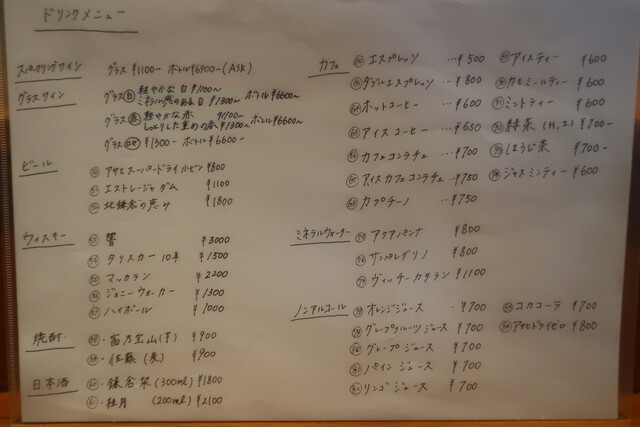 ドリンクメニュー
スパークリングワイン グラス ¥1100〜 ボトル ¥6900〜(ASK)
グラスワイン グラス 白 軽やかな白 ¥1100〜
ミネラル感のある白 ¥1300〜 ボトル ¥6600〜
グラス 赤 軽やかな赤 ¥1100〜
しっとりした重めの赤 ¥1300〜 ボトル ¥6600〜
グラス ロゼ ¥1300〜 ボトル ¥6600〜
ビール アサヒスーパードライ 小ビン ¥800
エストレージャ ダム ¥1100
北鎌倉の恵み ¥1800
ウィスキー 響 ¥3000
タリスカー 10年 ¥1500
マッカラン ¥2200
ジョニーウォーカー ¥1300
ハイボール ¥1000
焼酎 ・富乃宝山(芋) ¥900
・佐藤 (麦) ¥900
日本酒 ・鎌倉栞 (300ml) ¥1800
・桂月 (200ml) ¥2100
カフェ エスプレッソ …¥500
ダブルエスプレッソ …¥800
ホットコーヒー …¥600
アイスコーヒー …¥650
カフェコンラチェ …¥700
アイスカフェコンラチェ …¥750
カプチーノ …¥750
アイスティー ¥600
カモミールティー ¥600
ミントティー ¥600
緑茶 (H,I) ¥700-
ほうじ茶 ¥700-
ジャスミンティー ¥600
ミネラルウォーター アクアパンナ ¥800
サンペレグリノ ¥800
ヴィッチーカタラン ¥1100
ノンアルコール オレンジジュース ‥¥700
グレープフルーツジュース ¥700
グレープジュース ¥700
パインジュース ¥700
リンゴジュース ¥700
コカコーラ ¥700
アサヒドライゼロ ¥800